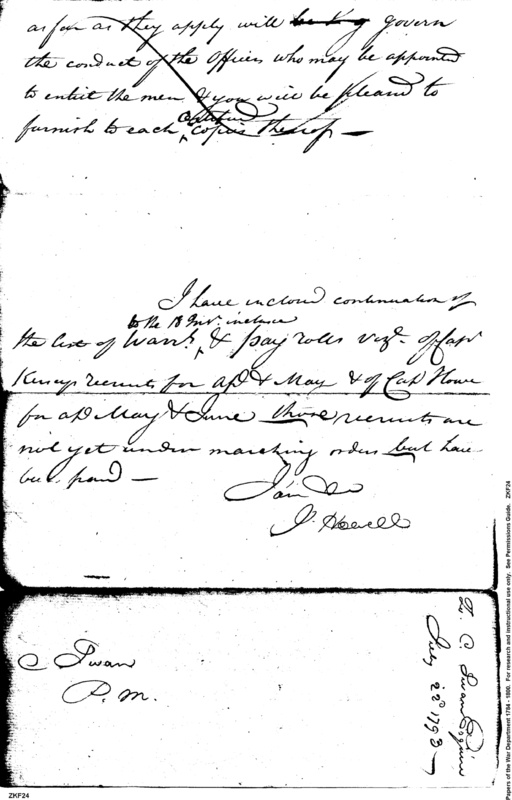 as far as they apply will be govern
the conduct of the Officers who may be appointed
to enlist the men & you will be pleased to
furnish to each certified copies thereof —
I have inclosed continuation of
to the 18 Inst. inclusive
the list of Warrts. & pay rolls vizt. of Capt
Kerseys recruits for Apl & May & of Capt Howe
for Apl May & June those recruits are
not yet under marching orders but have
been paid —
I am &c
J. Howell
C Swan
P. M.
C. Swan Esquire
July 22d 1793
ZKF24
Papers of the War Department 1784 - 1800. For research and instructional use only. See Permissions Guide. ZKF24